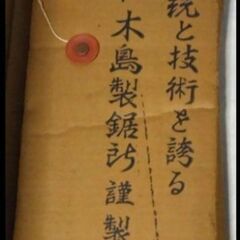 統と技術を誇る
木島製鋸所謹製